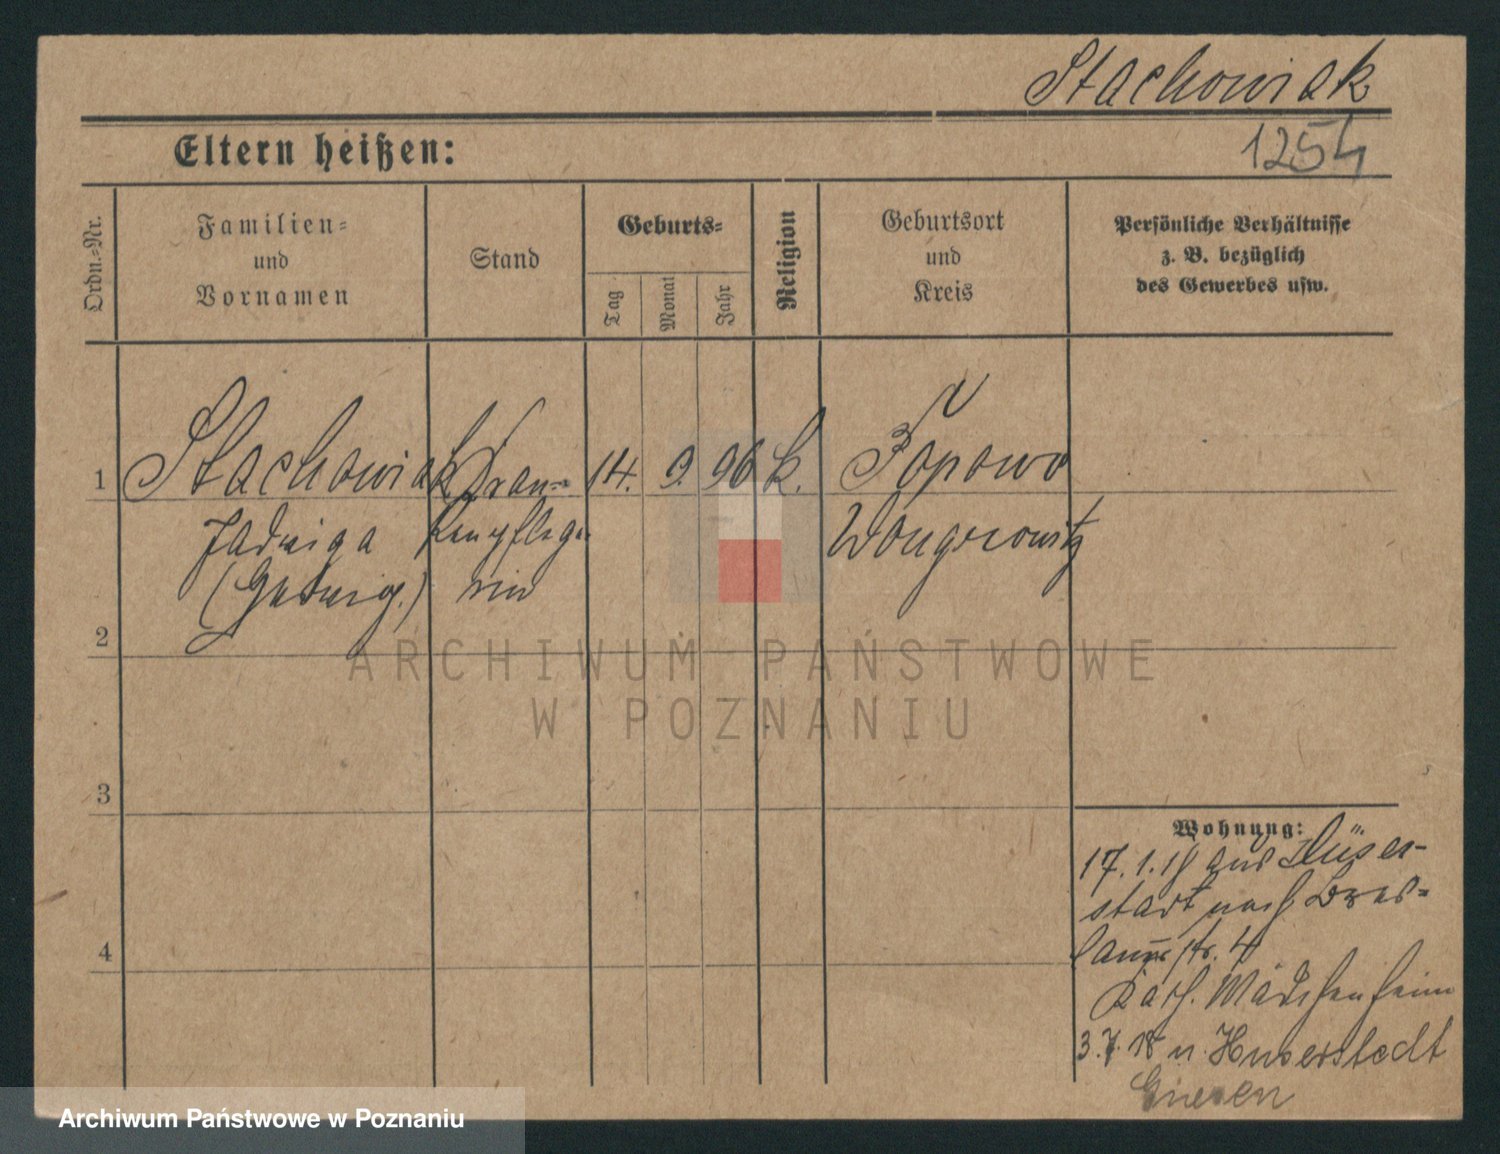 Stachowiak
1254
Eltern heißen:
Ordn.-Nr.
Familien-
und
Vornamen
Stand
Geburts-
Tag
Monat
Jahr
Religion
Geburtsort
und
Kreis
Persönliche Verhältnisse
z. B. bezüglich
des Gewerbes usw.
1 Stachowiak Kran- 14. 9. 96 k. Popowo
Jadwiga kenpflege- Wongrowitz
(Hedwig.) rin
2
ARCHIWUM PAŃSTWOWE
W POZNANIU
3
Wohnung:
17.1.18 aus
stadt nach Bres-
lauerstr. 4
4
Kath. Mädchenheim
3.7.18 n.
Gnesen
Archiwum Państwowe w Poznaniu